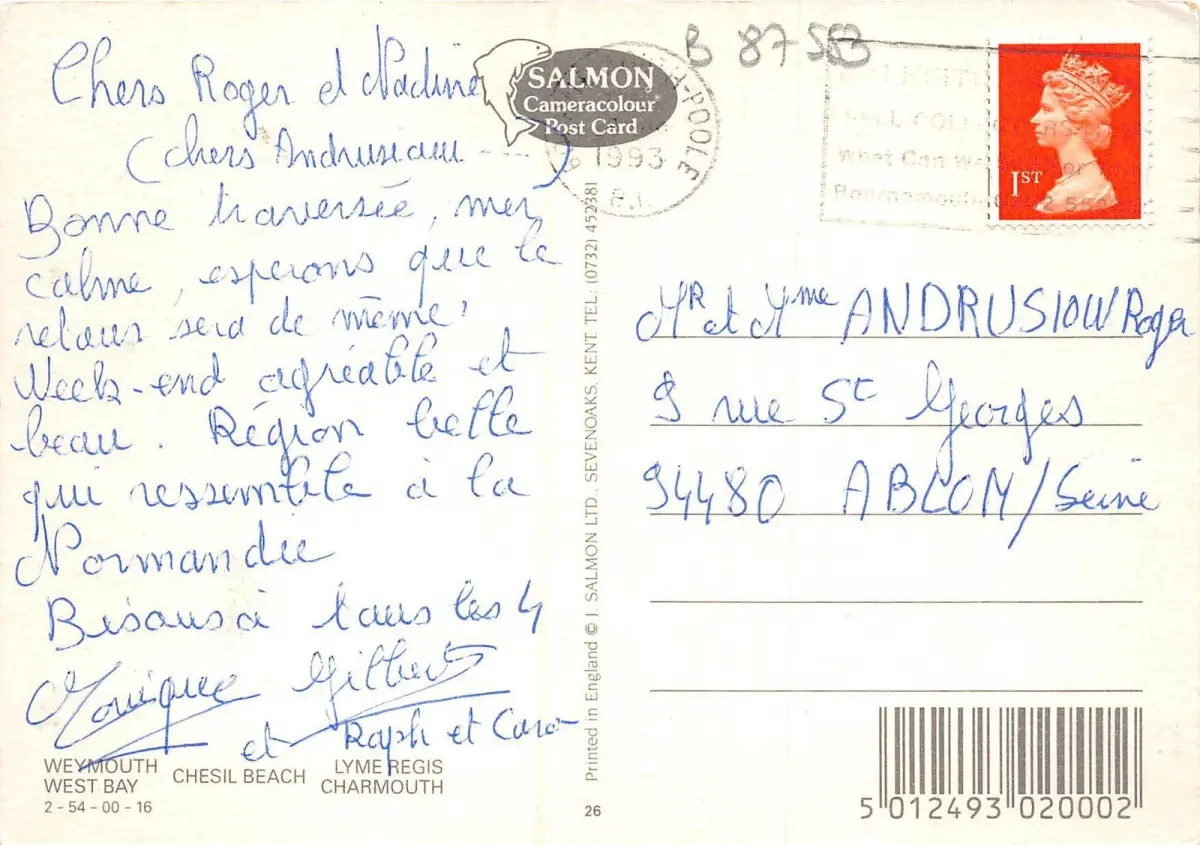 Chers Roger et Nadine
(chers Andrusiow ---)
Bonne traversée, mer
calme, espérons que le
retour sera de même !
Week-end agréable et
beau. Région belle
qui ressemble à la
Normandie
Bisous à tous les 4
Monique Gilbert
et Raph et Caro
WEYMOUTH
WEST BAY
CHESIL BEACH
LYME REGIS
CHARMOUTH
2 - 54 - 00 - 16
SALMON
Cameracolour
Post Card
Printed in England © J. SALMON LTD., SEVENOAKS, KENT. TEL: (0732) 452381
26
B 87553
POOLE
1993
What Can We
Bournemouth
1ST
Mr et Mme ANDRUSIOW Roger
9 rue St Georges
94480 ABLON/Seine
5 012493 020002